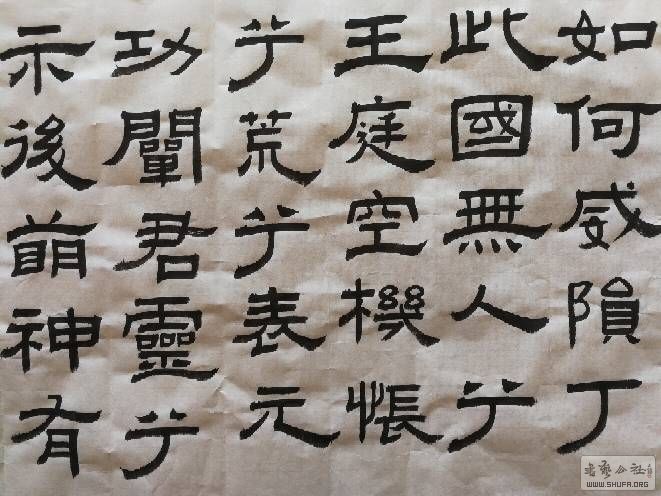 如何威隕丁
此國無人兮
王庭空機悵
兮荒兮表元
功闡君靈兮
示後萌神有
WWW.SHUFA.ORG